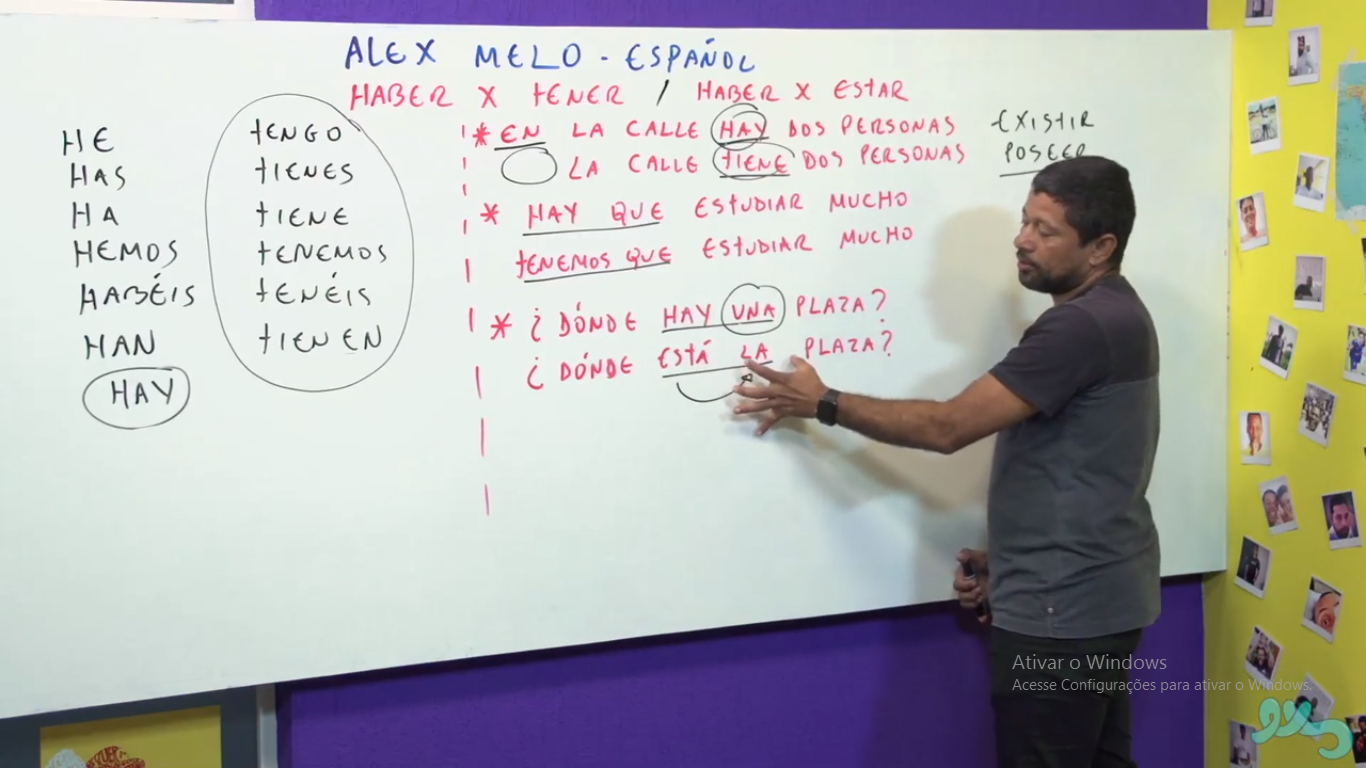 ALEX MELO - ESPAÑOL
HABER X TENER / HABER X ESTAR
HE
HAS
HA
HEMOS
HABÉIS
HAN
HAY
TENGO
TIENES
TIENE
TENEMOS
TENÉIS
TIENEN
* EN LA CALLE HAY DOS PERSONAS
LA CALLE TIENE DOS PERSONAS
* HAY QUE ESTUDIAR MUCHO
TENEMOS QUE ESTUDIAR MUCHO
* ¿DÓNDE HAY UNA PLAZA?
¿DÓNDE ESTÁ LA PLAZA?
EXISTIR
POSEER
Ativar o Windows
Acesse Configurações para ativar o Windows.